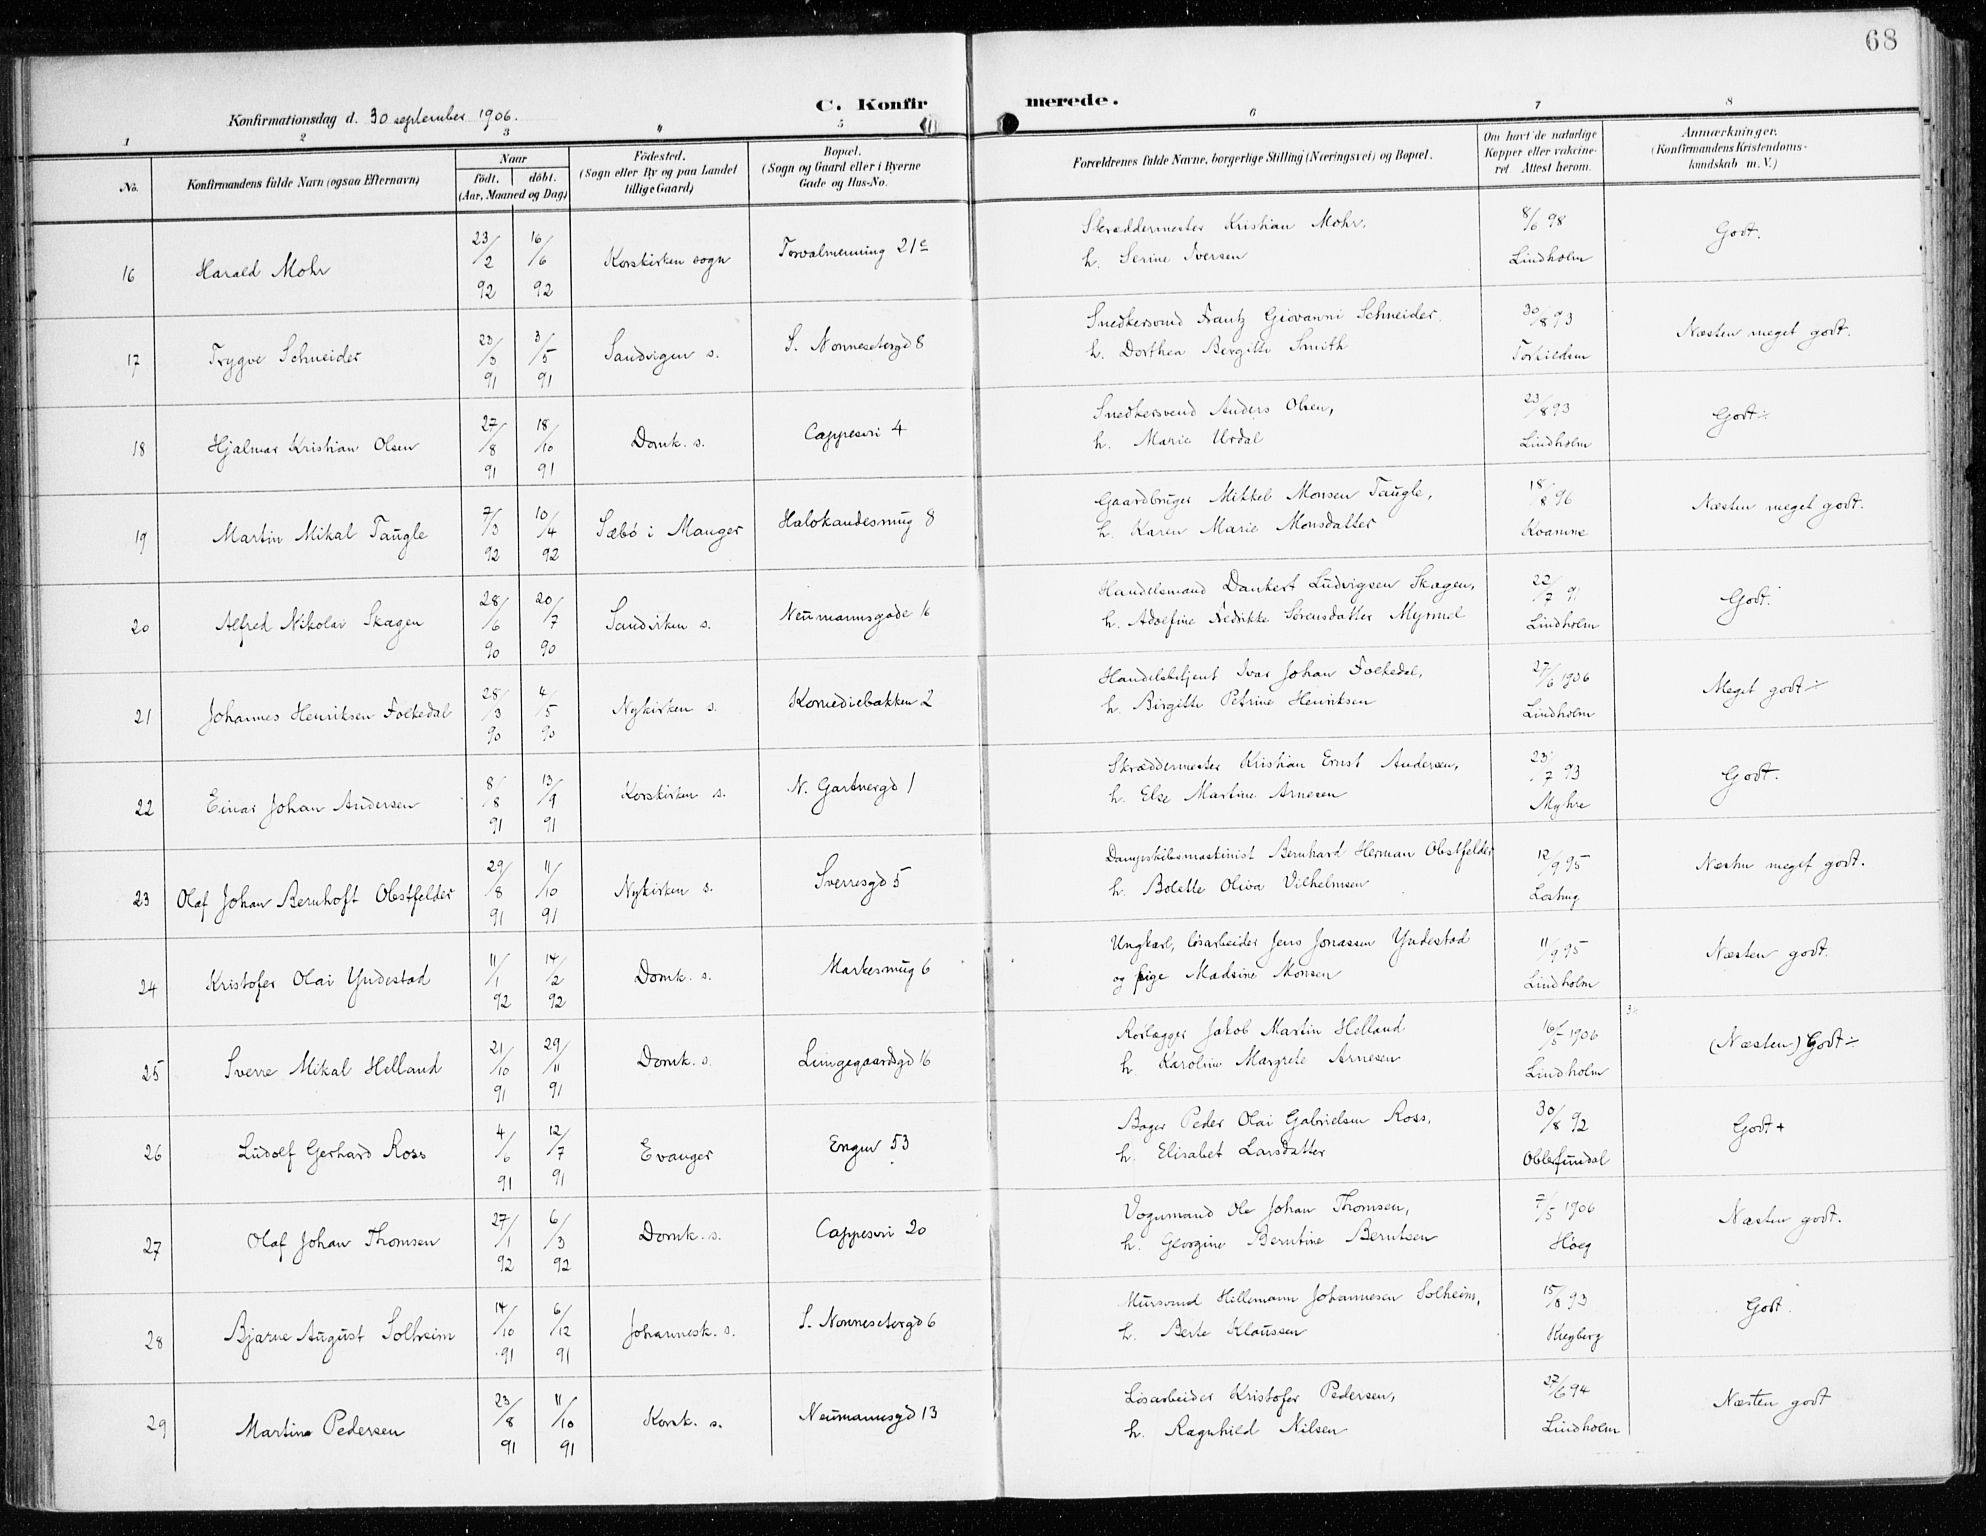 68
C. Konfirmerede.
Konfirmationsdag d. 30 september 1906.
1 2 3 " 5 6 7 8
No. Konfirmandens fulde Navn (ogsaa Efternavn) Naar födt. döbt. (Aar, Maaned og Dag) Födested. (Sogn eller By og paa Landet tillige Gaard) Bopæl. (Sogn og Gaard eller i Byerne Gade og Hus-No. Forældrenes fulde Navne, borgerlige Stilling (Næringsvei) og Bopæl. Om havt de naturlige Kopper eller vaccineret Attest herom. Anmærkninger. (Konfirmandens Kristendomskundskab m. V.)
16 Harald Mohr 23/2 92 16/6 92 Korskirken sogn Torvalmenning 21c Skræddermester Kristian Mohr, h. Serine Iversen 8/6 98 Lindholm Godt.
17 Trygve Schneider 23/3 91 3/5 91 Sandvigen s. S. Nonnesetergd 8 Snedkersvend Frantz Giovanni Schneider, h. Dorthea Bergitte Smith 30/8 93 Godt Næsten meget godt.
18 Hjalmar Kristian Olsen 27/8 91 18/10 91 Domk. s. Cappesvei 4 Snedkersvend Anders Olsen, h. Marie Urdal 23/8 93 Lindholm Godt ÷
19 Martin Mikal Taugle 7/3 92 10/4 92 Sæbö i Manger Halokandesmug 8 Gaardbruger Mikkel Monsen Taugle, h. Karen Marie Monsdatter 18/8 96 Kvamme Næsten meget godt.
20 Alfred Nikolai Skagen 28/6 90 20/7 90 Sandvken s. Neumannsgade 16 Handelsmand Dankert Ludvigsen Skagen, h. Adolfine Fredrikke Sörensdatter Myrmel 22/7 91 Lindholm Godt.
21 Johannes Henriksen Folkedal 28/3 90 4/5 90 Nykirken s. Komediebakken 2 Handelsbetjent Ivar Johan Folkedal, h. Birgitte Petrine Henriksen 27/6 1906 Lindholm Meget godt ÷
22 Einar Johan Andersen 8/8 91 13/9 91 Korskirken s. N. Gartnergd 1 Skræddermester Kristian Ernst Andersen, h. Else Martine Arnesen 23/7 93 Myhre Godt.
23 Olaf Johan Bernhoft Obstfelder 29/8 91 11/10 91 Nykirken s. Sverresgd 5 Dampskibsmaskinist Bernhard Herman Obstfelder h. Bolette Oliva Vilhelmsen 12/9 95 Næsten meget godt.
24 Kristofer Olai Yndestad 11/1 92 14/2 92 Domk. s. Markesmug 6 Ungkarl, lösarbeider Jens Jonassen Yndestad og pige Madsine Monsen 11/9 95 Lindholm Næsten godt.
25 Sverre Mikal Helland 21/10 91 29/11 91 Domk. s. Lungegaardsgd 16 Rörlægger Jakob Martin Helland h. Karoline Margrete Arnesen 16/5 1906 Lindholm (Næsten) Godt ÷
26 Ludolf Gerhard Ross 4/6 91 12/7 91 Evanger Engen 53 Bager Peder Olai Gabrielsen Ross, h. Elisabet Larsdatter 30/8 92 Godt +
27 Olaf Johan Thomsen 27/1 92 6/3 92 Domk. s. Cappesvei 20 Vognmand Ole Johan Thomsen, h. Georgine Berntine Berntsen 7/5 1906 Höeg Næsten godt.
28 Bjarne August Solheim 14/10 91 6/12 91 Johannesk. s. S. Nonnesetergd 6 Mursvend Hellemann Johannesen Solheim, h. Berte Klaussen 15/8 93 Godt.
29 Martin Pedersen 23/8 91 11/10 91 Korsk. s. Neumannsgd 13 Lösarbeider Kristofer Pedersen, h. Ragnhild Nilsen 27/6 94 Lindholm Næsten godt